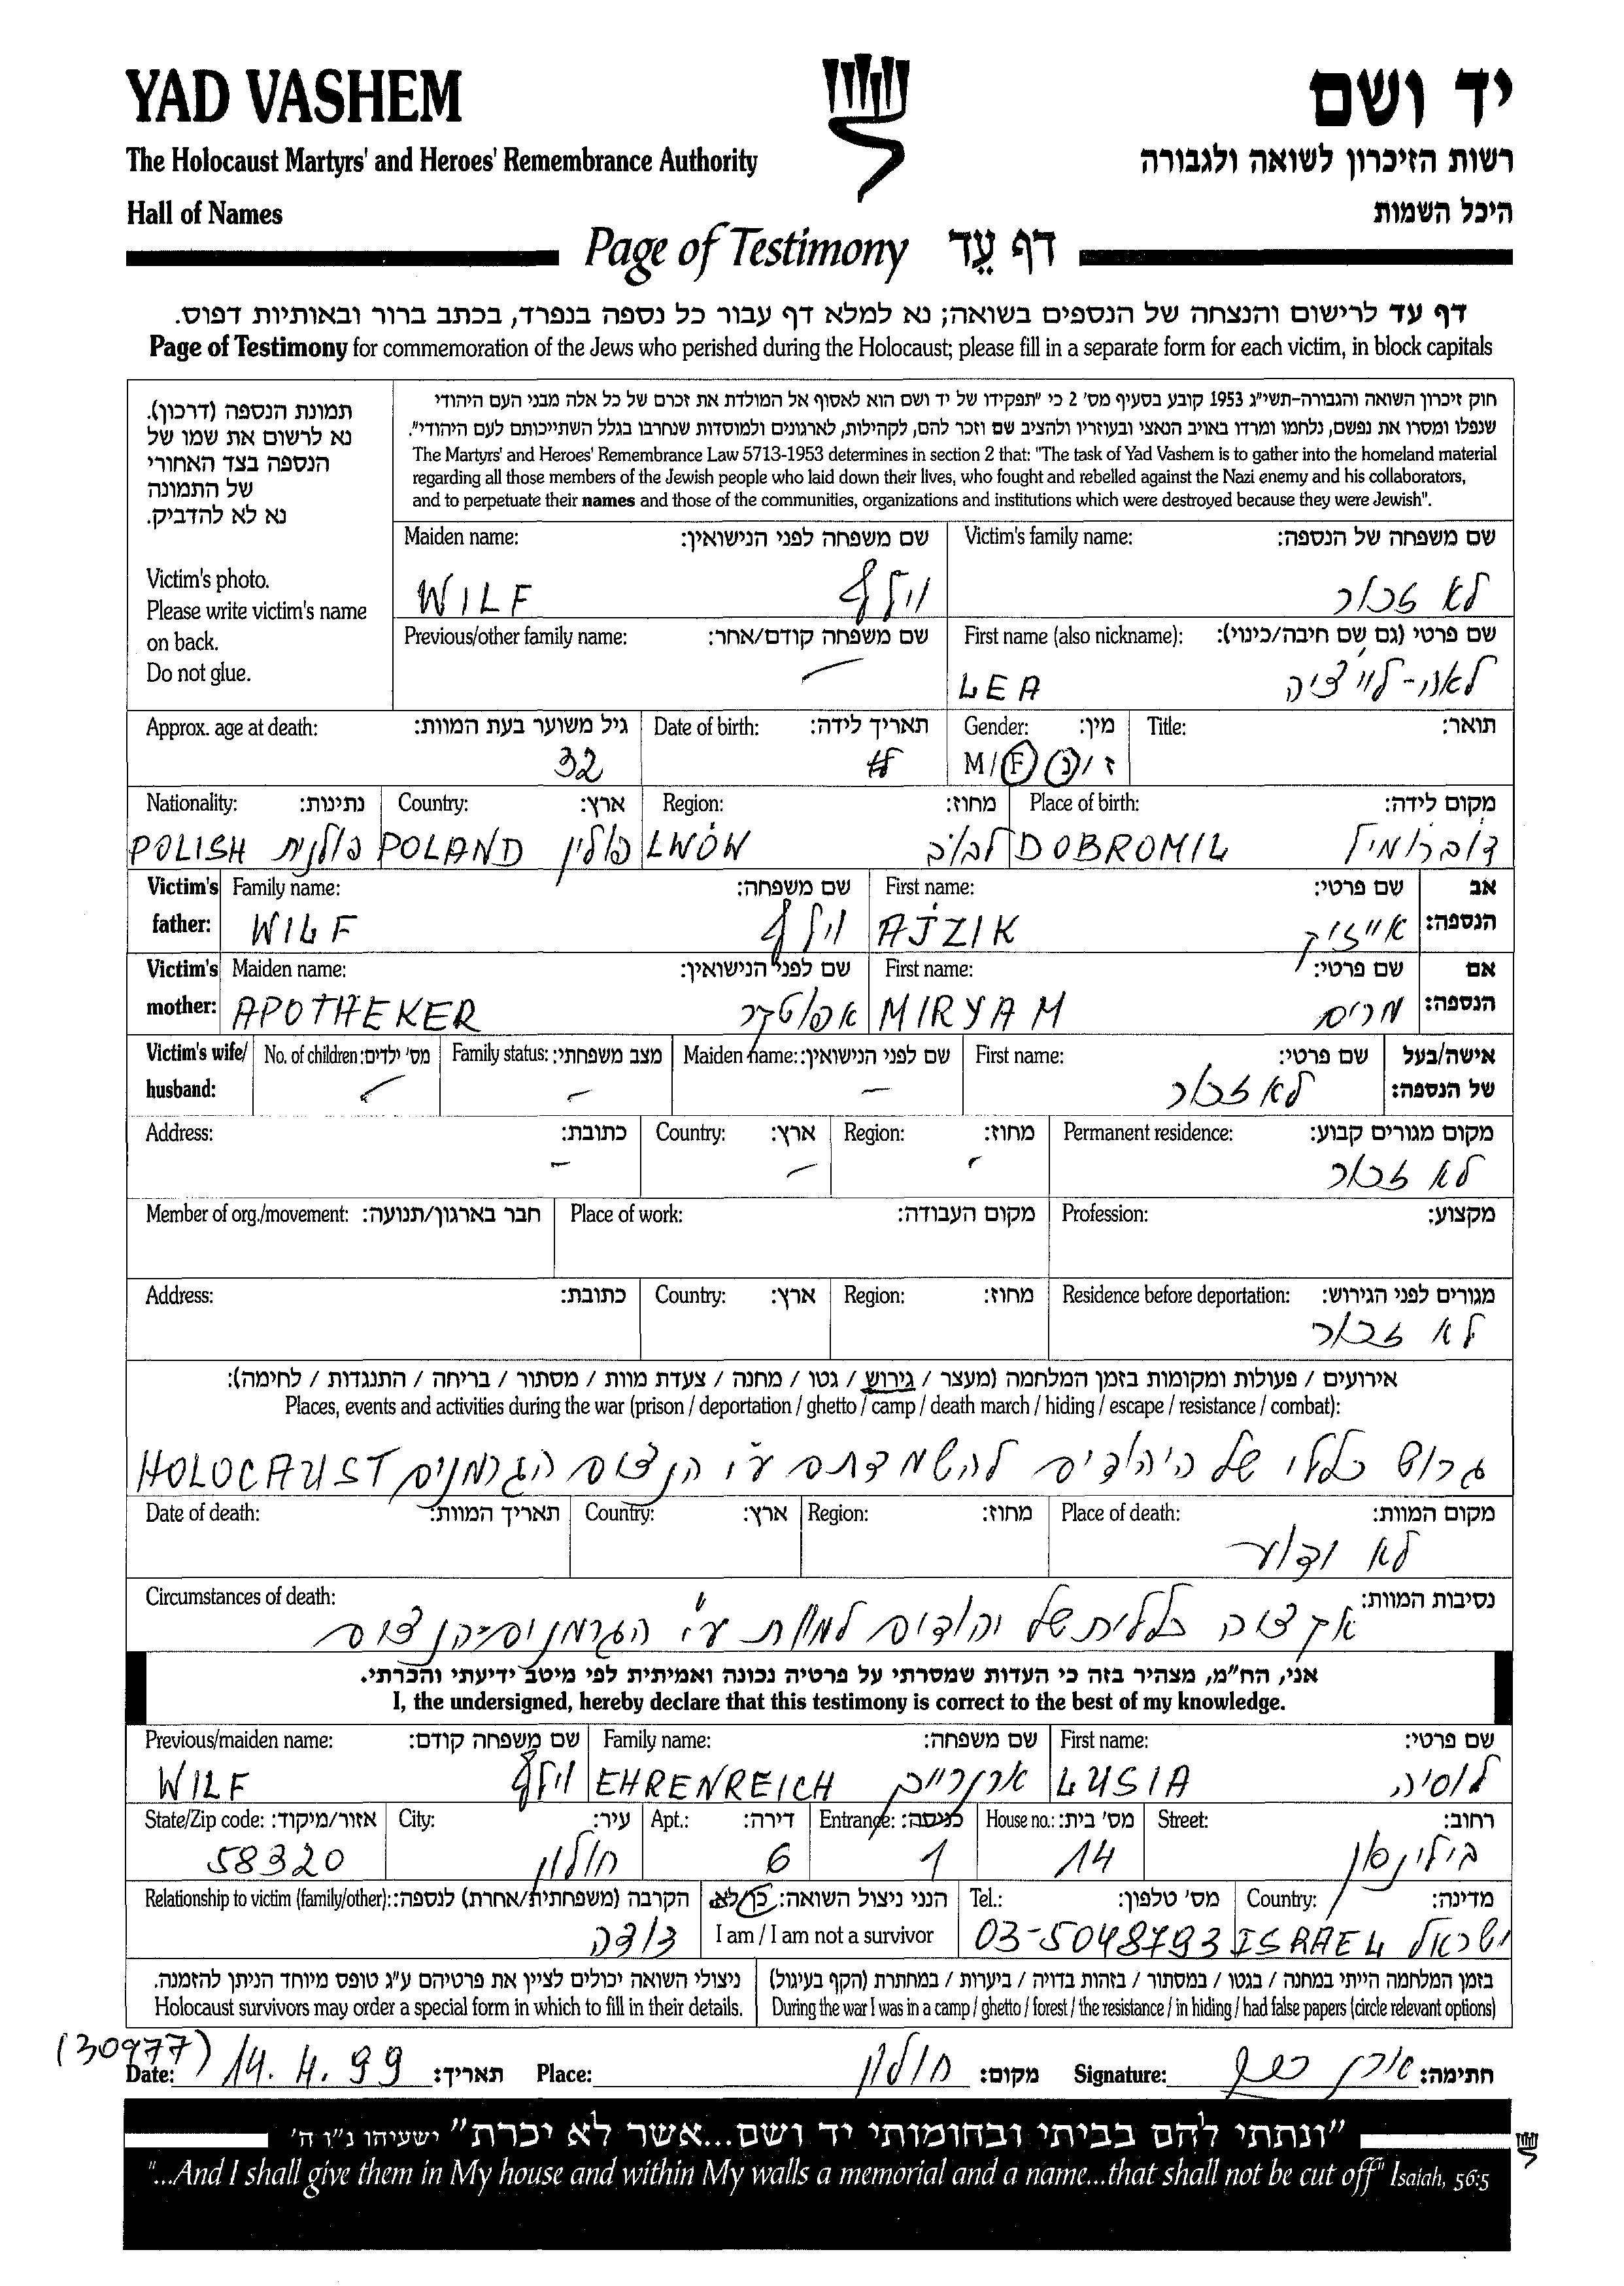 YAD VASHEM
יד ושם
The Holocaust Martyrs' and Heroes' Remembrance Authority
רשות הזיכרון לשואה ולגבורה
Hall of Names
היכל השמות
Page of Testimony דף עֵד
דף עד לרישום והנצחה של הנספים בשואה; נא למלא דף עבור כל נספה בנפרד, בכתב ברור ובאותיות דפוס.
Page of Testimony for commemoration of the Jews who perished during the Holocaust; please fill in a separate form for each victim, in block capitals
תמונת הנספה (דרכון).
נא לרשום את שמו של
הנספה בצד האחורי
של התמונה
נא לא להדביק.
Victim's photo.
Please write victim's name
on back.
Do not glue.
חוק זיכרון השואה והגבורה-תשי"ג 1953 קובע בסעיף מס' 2 כי "תפקידו של יד ושם הוא לאסוף אל המולדת את זכרם של כל אלה מבני העם היהודי
שנפלו ומסרו את נפשם, נלחמו ומרדו באויב הנאצי ובעוזריו ולהציב שם וזכר להם, לקהילות, לארגונים ולמוסדות שנחרבו בגלל השתייכותם לעם היהודי".
The Martyrs' and Heroes' Remembrance Law 5713-1953 determines in section 2 that: "The task of Yad Vashem is to gather into the homeland material
regarding all those members of the Jewish people who laid down their lives, who fought and rebelled against the Nazi enemy and his collaborators,
and to perpetuate their names and those of the communities, organizations and institutions which were destroyed because they were Jewish".
Maiden name: שם משפחה לפני הנישואין: Victim's family name: שם משפחה של הנספה:
WILF וילף לא זכור
Previous/other family name: שם משפחה קודם/אחר: First name (also nickname): שם פרטי (גם שם חיבה/כינוי):
LEA לאה-לוייציה
Approx. age at death: גיל משוער בעת המוות: Date of birth: תאריך לידה: Gender: מין: Title: תואר:
32 M/F ז/נ
Nationality: נתינות: Country: ארץ: Region: מחוז: Place of birth: מקום לידה:
POLISH פולנית POLAND פולין LWÓW לבוב DOBROMIL דוברומיל
Victim's father: Family name: שם משפחה: First name: שם פרטי: אב הנספה:
WILF וילף AJZIK אייזיק
Victim's mother: Maiden name: שם לפני הנישואין: First name: שם פרטי: אם הנספה:
APOTHEKER אפוטקר MIRYAM מרים
Victim's wife/ husband: No. of children: מס' ילדים: Family status: מצב משפחתי: Maiden name: שם לפני הנישואין: First name: שם פרטי: אישה/בעל של הנספה:
לא זכור
Address: כתובת: Country: ארץ: Region: מחוז: Permanent residence: מקום מגורים קבוע:
לא זכור
Member of org./movement: חבר בארגון/תנועה: Place of work: מקום העבודה: Profession: מקצוע:
Address: כתובת: Country: ארץ: Region: מחוז: Residence before deportation: מגורים לפני הגירוש:
לא זכור
אירועים / פעולות ומקומות בזמן המלחמה (מעצר / גירוש / גטו / מחנה / צעדת מוות / מסתור / בריחה / התנגדות / לחימה):
Places, events and activities during the war (prison / deportation / ghetto / camp / death march / hiding / escape / resistance / combat):
גרוש כללי של היהודים להשמדתם ע"י הנצים הגרמנים HOLOCAUST
Date of death: תאריך המוות: Country: ארץ: Region: מחוז: Place of death: מקום המוות:
לא ידוע
Circumstances of death: נסיבות המוות:
אקציה כללית של יהודים למוות ע"י הגרמנים-הנצים
אני, הח"מ, מצהיר בזה כי העדות שמסרתי על פרטיה נכונה ואמיתית לפי מיטב ידיעתי והכרתי.
I, the undersigned, hereby declare that this testimony is correct to the best of my knowledge.
Previous/maiden name: שם משפחה קודם: Family name: שם משפחה: First name: שם פרטי:
WILF וילף EHRENREICH ארנרייך LUSIA לוסיה
State/Zip code: אזור/מיקוד: City: עיר: Apt.: דירה: Entrange: כניסה: House no.: מס' בית: Street: רחוב:
58320 חולון 6 1 14 בילינסון
Relationship to victim (family/other): הקרבה (משפחתית/אחרת) לנספה: הנני ניצול השואה: כן/לא Tel.: מס' טלפון: Country: מדינה:
דודה I am / I am not a survivor 03-5048793 ISRAEL ישראל
ניצולי השואה יכולים לציין את פרטיהם ע"ג טופס מיוחד הניתן להזמנה. בזמן המלחמה הייתי במחנה / בגטו / במסתור / בזהות בדויה / ביערות / במחתרת (הקף בעיגול)
Holocaust survivors may order a special form in which to fill in their details. During the war I was in a camp / ghetto / forest / the resistance / in hiding / had false papers (circle relevant options)
(30977)
Date: 14.4.99 תאריך: Place: חולון מקום: Signature: חתימה:
"ונתתי להם בביתי ובחומותי יד ושם...אשר לא יכרת" ישעיהו נ"ו ה'
"...And I shall give them in My house and within My walls a memorial and a name...that shall not be cut off" Isaiah, 56:5